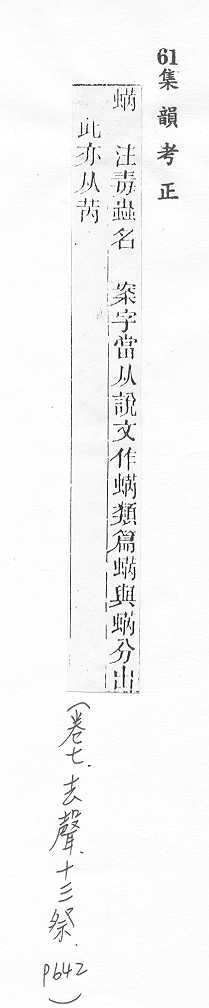 61 集韻考正
蝺 注毒蟲名 案字當从說文作蟎類篇蟎與蝺分出
此亦从芮
(卷七.去聲.十三祭.p642)